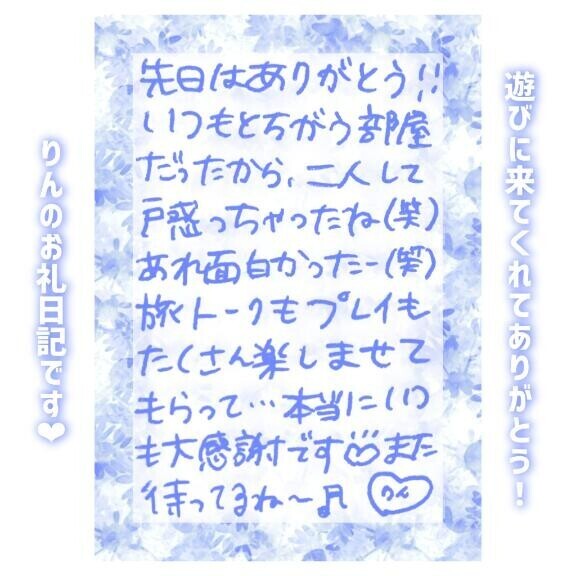 遊びに来てくれてありがとう！
先日はありがとう!!
いつもとちがう部屋
だったから、二人して
戸惑っちゃったね(笑)
あれ面白かったー(笑)
旅トークもプレイも
たくさん楽しませて
もらって…本当にいつ
も大感謝ですまた
待ってるね〜♬
りんのお礼日記です❤